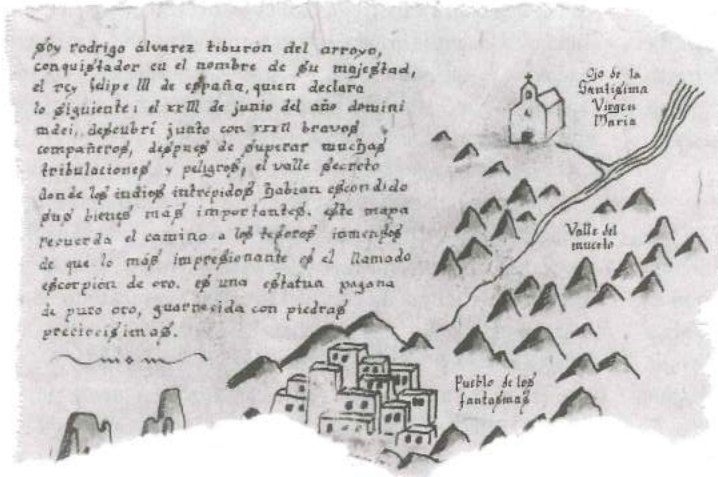 soy rodrigo álvarez tiburón del arroyo,
conquistador en el nombre de su majestad,
el rey felipe III de españa, quien declara
lo siguiente: el xxIII de junio del año domini
mdci, descubrí junto con xxxII bravos
compañeros, despues de superar muchas
tribulaciones y peligros, el valle secreto
donde los indios intrépidos habian escondido
sus bienes más importantes. este mapa
recuerda el camino a los tesoros inmensos
de que lo más impresionante es el llamado
escorpión de oro. es una estatua pagana
de puro oro, guarnecida con piedras
preciosísimas.
Ojo de la
Santisima
Virgen
Maria
Valle del
muerto
Pueblo de los
fantasmas